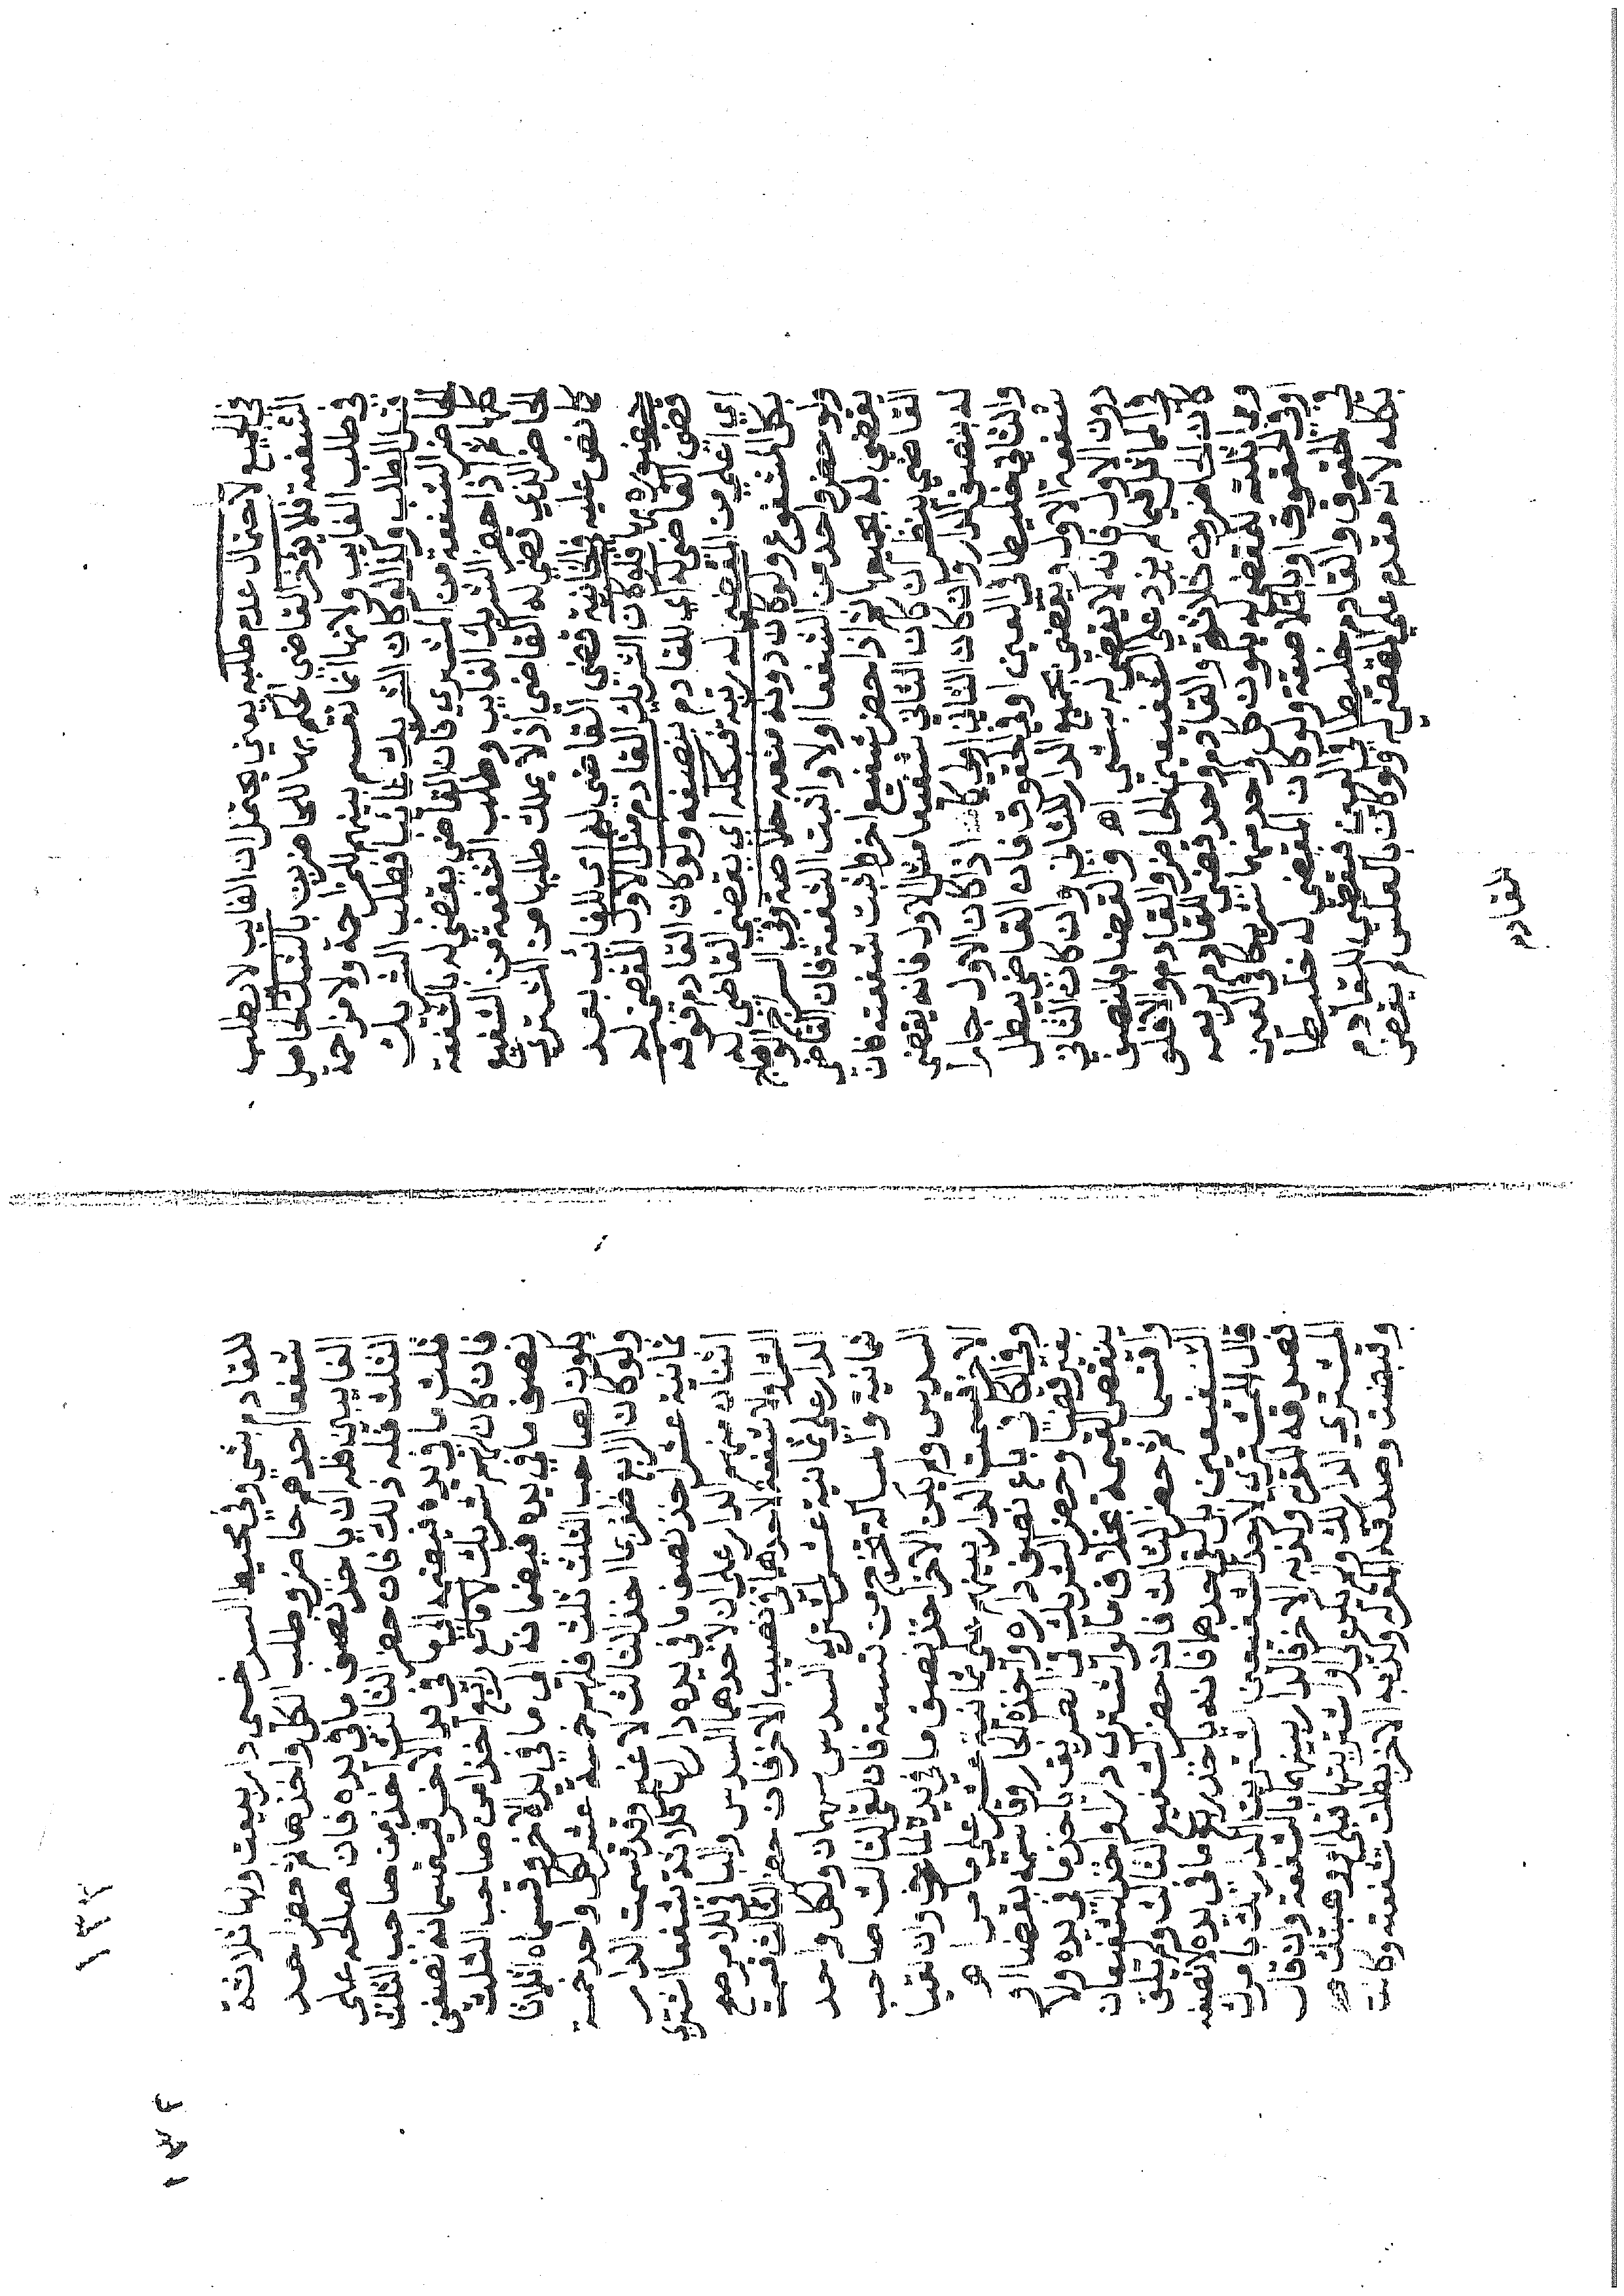 في الجميع لاحتمال عدم طلبه يعني يحتمل ان الغايب لا يطلب
الشفعة فلا يؤخر القاضي الحكم بها للحاضرين بالشك الحاصل
في طلب الغايب ولانها انما تقسم بينهم للمزاحمة ولا مزاحمة
قبل الطلب وكذا لو كان الشريك غائبا فطلب الشريك
الحاضر الشفعة من المشتري فان القاضي يقضي له بالشفعة
كلها ثم اذا حضر الشريك الغايب وطلب الشفعة من الشفيع
الحاضر الذي قضي له القاضي اذ لا يملك طلبها من المشتري
كما نص عليه في الخانية قضى القاضي له اي للغائب بعد
حضوره بها فلو كان الشريك القادم مثل الاول المقضي له
قضى القاضي له اي للقادم بنصفه ولو كان القادم فوقه
اي اعلى من المقضي له رتبة فبكله اي يقضي القاضي له
بكل المشفوع ولو كان دونه منعه خلاصة وفي السراج الوهاج
ولو حضر واحد من الشفعا اولا واثبت الشفعة فان القاضي
يقضي له بجميعها ثم اذا حضر شفيع اخر واثبت شفعته فان
القاضي ينظر ان كان الثاني شفيعا مثل الاول فانه يقضي
له بنصف الدار وان كان الثاني اولى كما اذا كان الاول جارا
والثاني خليطا في العين او في الحقوق فان القاضي يبطل
شفعة الاول ويقضي بجميع الدار للثاني وان كان الثاني
دون الاول فانه لا يقضي له بشي اه والقضا بالنصف
في المماثل فيما لم يزد على الشفيعين الحاضر والقادم والا فلو
كان الحاضرون ثلاثة والقادم واحد قضي للقادم بربعه
للمقضي له يكون كل واحد منهما شريكا في العين
او في الحقوق او بالملاصقة ولو كان المقضي له خليطا
في الحقوق والقادم خليطا في العين فيقضي للقادم
بكله لانه مقدم على المقضي له ولو كان بالعكس لم يقض
للقادم
للقادم بشي وفي محيط السرخسي دار بيعت ولها ثلاثة
شفعا احدهم حاضر وطلب الكل واخذها ثم حضر احد
الغايبين فله ان ياخذ نصف ما في يده فان صالحه على
الثلث فله ذلك فان حضر الثالث اخذ من صاحب الثلث
ثلث ما في يده فيضمه الى ما في يد الاخر فيقسمانه نصفين
فان كان لهم شريك رابع اخذ من صاحب الثلث
نصف ما في يده فيضمانه الى ما في يده الاخر وقسماه اثلاثا
يكون لصاحب الثلث ثلث فلهم خمسة عشر لكل واحد خمسة
ولو كان الرابع ظفر بما اخذ الثالث لا غير وقد قسمت الدار
ثمانية عشر اخذ نصف ما في يده دار لها ثلاثة شفعا اشترى
اثنان منهم الدار على ان لاحدهما السدس والباقي للاخر صح
الشرا ولا شفعة لاحدهما في نصيب الاخر فان حضر الثالث قسمت
الدار على ثمانية عشر لمشتري السدس سهمان ولكل واحد
ثمانية والمسالة تخرج من تسعة فان لقي الثالث صاحب
السدس ولم يكن الاخر اخذ نصف ما في يده وان لقيا
الاخر قسمت الدار بينهم على ثمانية عشر على ما مر اه
وفي الكافي باع نصف داره واخذه الجار وقاسمه بقضا او
بغير قضا وحضر الشريك في الطريق ياخذ ما في يده ولا
ينقض القسمة بخلاف ما لو اشترى دارا واخذ الشفيعان
واقتسما ثم حضر الثالث فان حضر الشفيع الثالث ولم يلق
الشفيعين بل لقي احدهما فانه ياخذ ربع ما في يده لا نصفه
قال المشتري لاحد الشفيعين اشتريت الدار لك بامرك
فصدقه المقر له وكذبه الاخر فالدار بينهما بالشفعة وان قال
المشتري الدار لك ولم تكن لي او اشتريتها قبلي او وهبتك
وقبضت وصدقه المقر له وكذبه الاخر بطلت شفعته وكانت